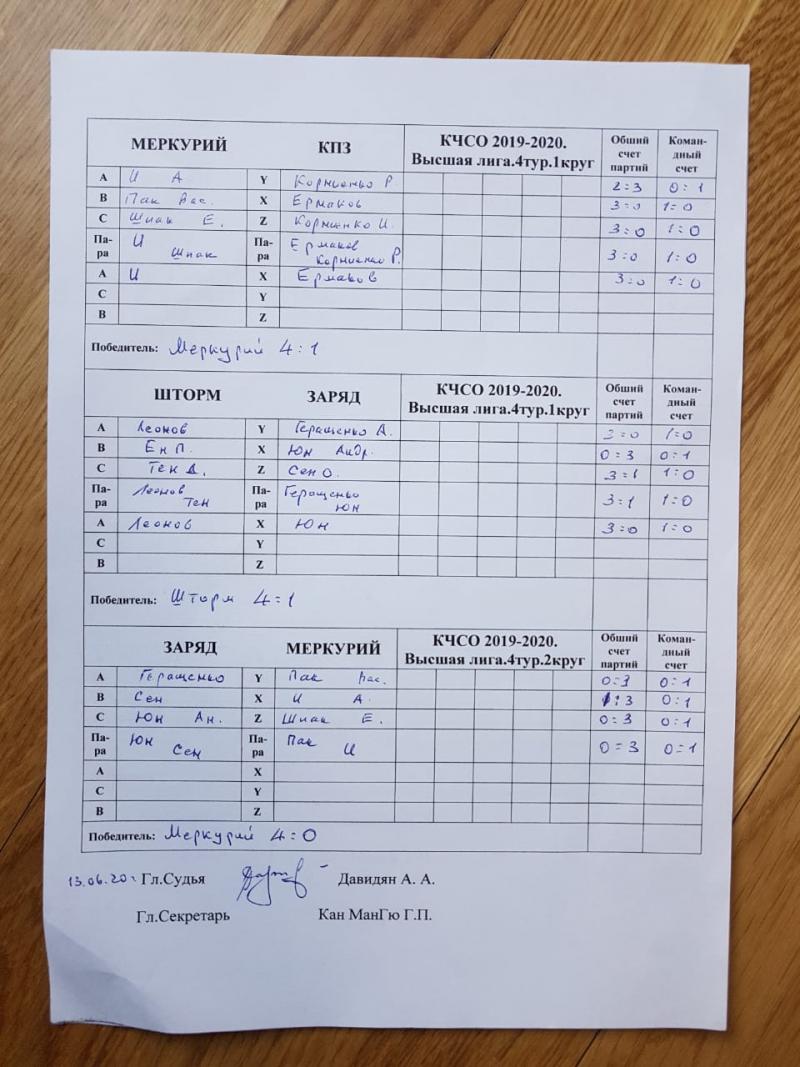 МЕРКУРИЙ КПЗ КЧСО 2019-2020. Высшая лига.4тур.1круг Общий счет партий Коман-дный счет
А И А Y Корниенко Р. 2:3 0:1
В Пак Вас. X Ермаков 3:0 1:0
С Шпак Е. Z Корниенко И. 3:0 1:0
Па-ра И Шпак Па-ра Ермаков Корниенко Р. 3:0 1:0
А И X Ермаков 3:0 1:0
С Y
В Z
Победитель: Меркурий 4:1
ШТОРМ ЗАРЯД КЧСО 2019-2020. Высшая лига.4тур.1круг Общий счет партий Коман-дный счет
А Леонов Y Геращенко А. 3:0 1:0
В Ен П. X Юн Андр. 0:3 0:1
С Тен Д. Z Сен О. 3:1 1:0
Па-ра Леонов Тен Па-ра Геращенко Юн 3:1 1:0
А Леонов X Юн 3:0 1:0
С Y
В Z
Победитель: Шторм 4:1
ЗАРЯД МЕРКУРИЙ КЧСО 2019-2020. Высшая лига.4тур.2круг Общий счет партий Коман-дный счет
А Геращенко Y Пак Вас. 0:3 0:1
В Сен X И А. 1:3 0:1
С Юн Ан. Z Шпак Е. 0:3 0:1
Па-ра Юн Сен Па-ра Пак И 0:3 0:1
А X
С Y
В Z
Победитель: Меркурий 4:0
13.06.20г Гл.Судья Давидян А. А.
Гл.Секретарь Кан МанГю Г.П.